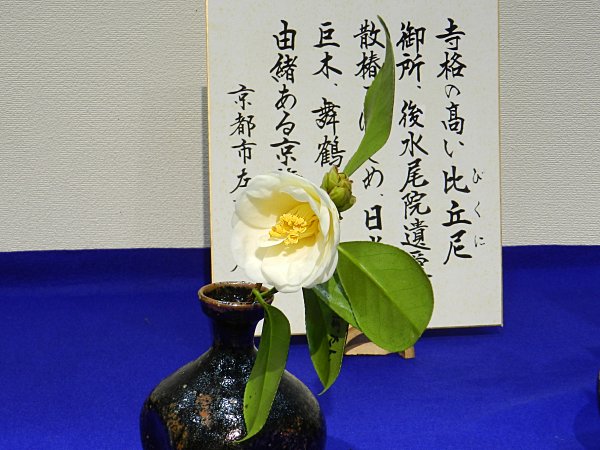 寺格の高い比丘尼
びくに
御所、後水尾院遺愛
散椿
め、日
巨木、舞鶴
由緒ある京
京都市左